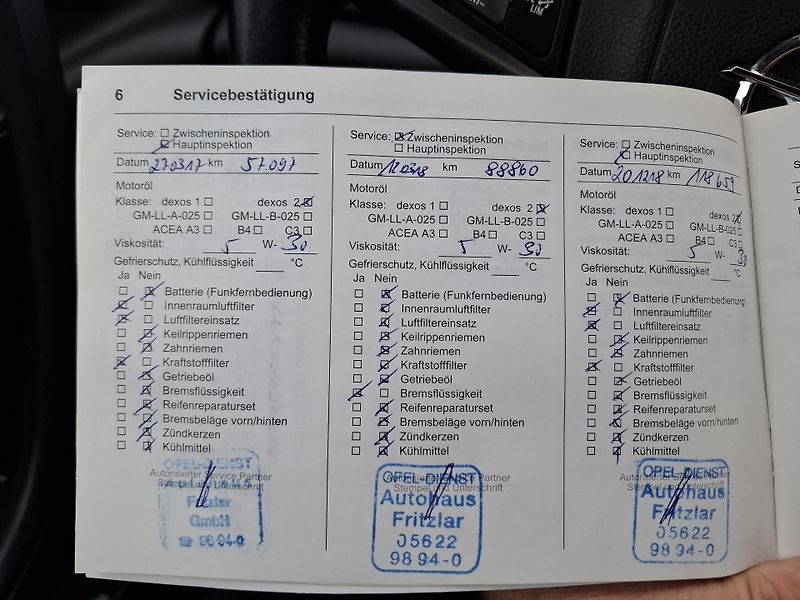 LIM
6 Servicebestätigung
Service: ☐ Zwischeninspektion
☒ Hauptinspektion
Datum 270317 km 57097
Motoröl
Klasse: dexos 1 ☐ dexos 2 ☒
GM-LL-A-025 ☐ GM-LL-B-025 ☐
ACEA A3 ☐ B4 ☐ C3 ☐
Viskosität: 5 W- 30
Gefrierschutz, Kühlflüssigkeit ____ °C
Ja Nein
☐ ☒ Batterie (Funkfernbedienung)
☒ ☐ Innenraumluftfilter
☒ ☐ Luftfiltereinsatz
☐ ☒ Keilrippenriemen
☐ ☒ Zahnriemen
☒ ☐ Kraftstofffilter
☐ ☒ Getriebeöl
☐ ☒ Bremsflüssigkeit
☐ ☒ Reifenreparaturset
☐ ☒ Bremsbeläge vorn/hinten
☐ ☒ Zündkerzen
☐ ☒ Kühlmittel
Autorisierter Service Partner
Stempel und Unterschrift
OPEL-DIENST
Fritzlar
GmbH
☎ 98 94-0
Service: ☒ Zwischeninspektion
☐ Hauptinspektion
Datum 120318 km 88860
Motoröl
Klasse: dexos 1 ☐ dexos 2 ☒
GM-LL-A-025 ☐ GM-LL-B-025 ☐
ACEA A3 ☐ B4 ☐ C3 ☐
Viskosität: 5 W- 30
Gefrierschutz, Kühlflüssigkeit ____ °C
Ja Nein
☐ ☒ Batterie (Funkfernbedienung)
☐ ☒ Innenraumluftfilter
☐ ☒ Luftfiltereinsatz
☐ ☒ Keilrippenriemen
☐ ☒ Zahnriemen
☐ ☒ Kraftstofffilter
☐ ☒ Getriebeöl
☒ ☐ Bremsflüssigkeit
☐ ☒ Reifenreparaturset
☐ ☒ Bremsbeläge vorn/hinten
☐ ☒ Zündkerzen
☐ ☒ Kühlmittel
Autorisierter Service Partner
Stempel und Unterschrift
OPEL-DIENST
Autohaus
Fritzlar
05622
98 94-0
Service: ☐ Zwischeninspektion
☒ Hauptinspektion
Datum 201218 km 118659
Motoröl
Klasse: dexos 1 ☐ dexos 2 ☒
GM-LL-A-025 ☐ GM-LL-B-025 ☐
ACEA A3 ☐ B4 ☐ C3 ☐
Viskosität: 5 W- 30
Gefrierschutz, Kühlflüssigkeit ____ °C
Ja Nein
☐ ☒ Batterie (Funkfernbedienung)
☒ ☐ Innenraumluftfilter
☒ ☐ Luftfiltereinsatz
☐ ☒ Keilrippenriemen
☐ ☒ Zahnriemen
☒ ☐ Kraftstofffilter
☐ ☒ Getriebeöl
☐ ☒ Bremsflüssigkeit
☐ ☒ Reifenreparaturset
☐ ☒ Bremsbeläge vorn/hinten
☐ ☒ Zündkerzen
☐ ☒ Kühlmittel
Stempel und Unterschrift
OPEL-DIENST
Autohaus
Fritzlar
05622
98 94-0